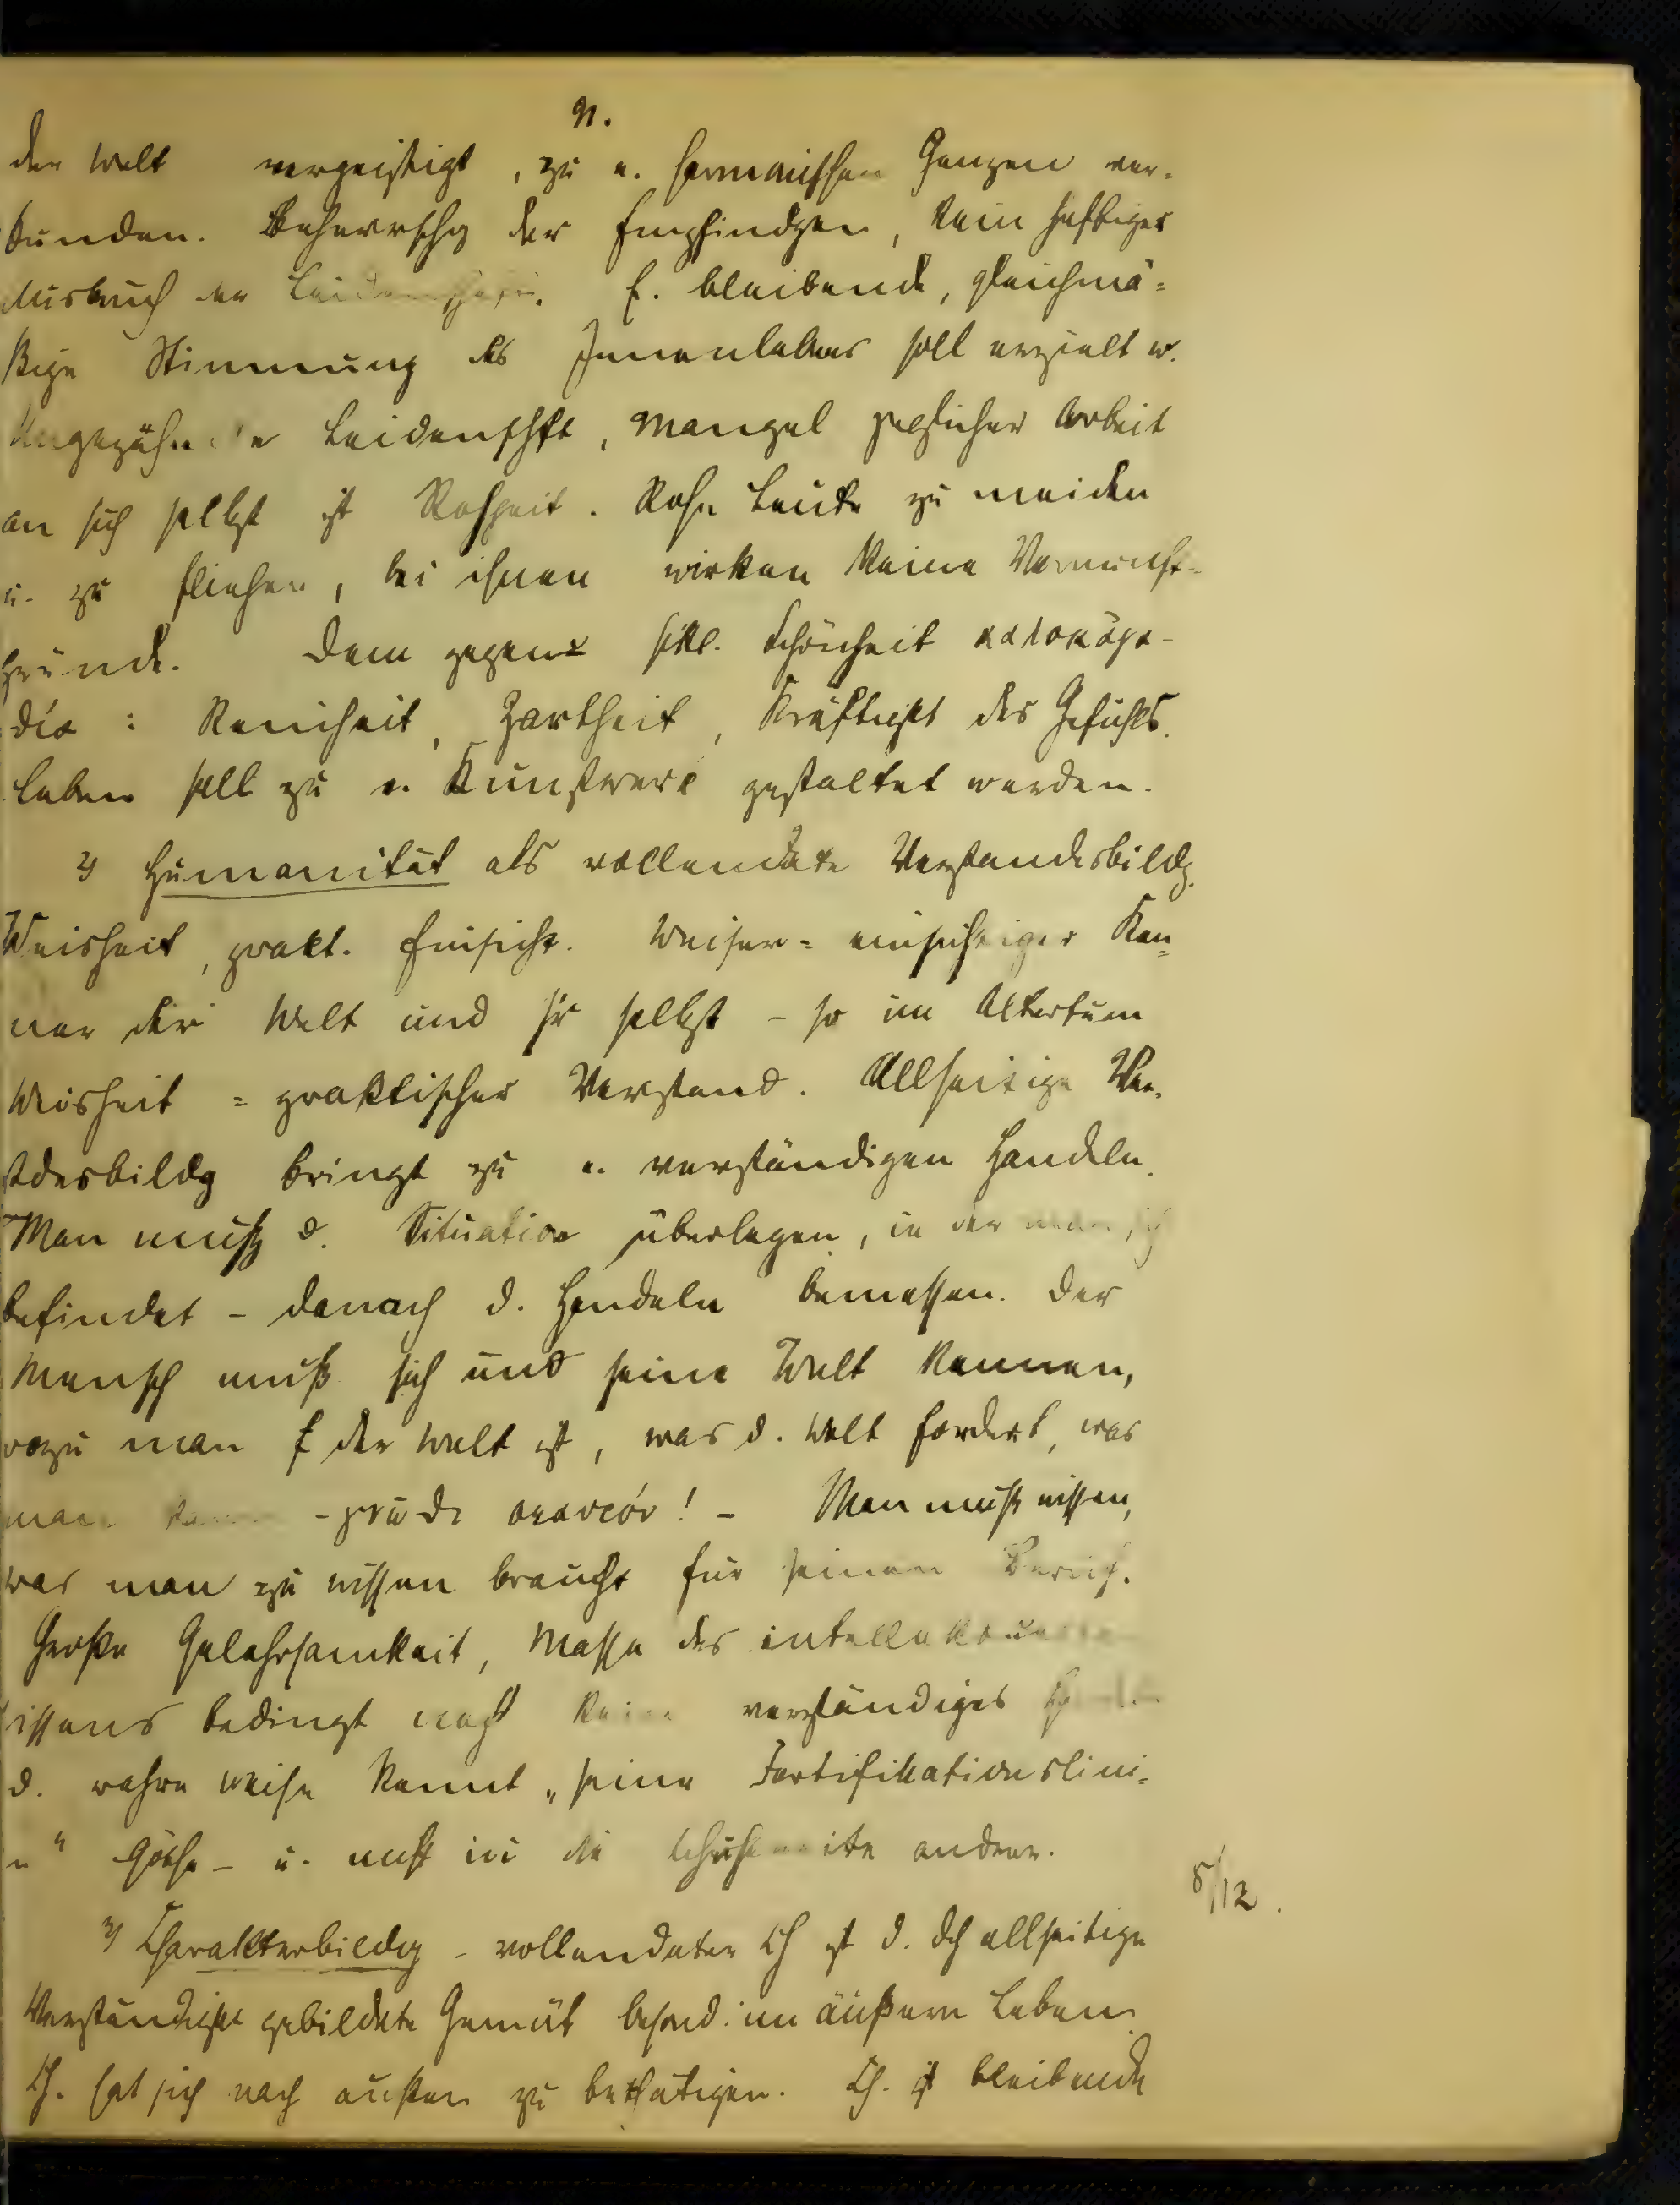 n.
der Welt vergeistigt, zu e. harmonischen Ganzen ver-
bunden. Beherrschg der Empfindgen, kein heftiger
Ausbruch der Leidenschaft. E. bleibende, gleichmä-
ßige Stimmung des Innenlebens soll erzielt w.
Ungezähmte Leidenschft, Mangel jeglicher Arbeit
an sich selbst ist Rohheit. Rohe Leute zu meiden
u. zu fliehen, bei ihnen wirken keine Vernunft-
gründe. Dem gegen sittl. Schönheit καλοκἀγα-
θία: Reinheit, Zartheit, Kräftigkt des Gefühls.
Leben soll zu e. Kunstwerk gestaltet werden.
2) Humanität als vollendete Verstandesbildg.
Weisheit, prakt. Einsicht. Weiser = einsichtiger Ken-
ner der Welt und sr selbst - so im Altertum
Weisheit = praktischer Verstand. Allseitige Ver-
stdesbildg bringt zu e. verständigen Handeln.
Man muß d. Situation überlegen, in der man sich
befindet - danach d. Handeln bemessen. Der
Mensch muß sich und seine Welt kennen,
wozu man f der Welt ist, was d. Welt fordert, was
man kann - γνῶθι σεαυτόν! - Man muß wissen,
was man zu wissen braucht für seinen Beruf.
Große Gelehrsamkeit, Masse des intellektuellen
issens bedingt noch kein verständiges
d. wahre Weise kennt „seine Fortifikationslini-
n" Göthe - u. nicht in die andrer.
8/12.
3) Charakterbildg - vollendeter Ch ist d. dch allseitige
Verständigkt gebildete Gemüt besond. im äußern Leben.
Ch. hat sich nach außen zu bethätigen. Ch. ist bleibende